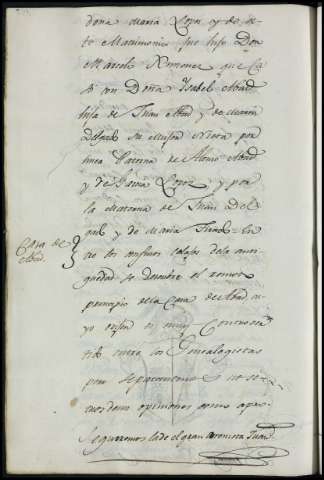 dona Maria Lopz y de es-
te Matrimonio fue hijo Don
Marcelo Ximenez que Ca-
só con Doña Ysabel Abad
hija de Juan Abad y de Maria
su Muger Nieta por
linea Paterna de Alonso Abad
y de Juana Lopez y por
la Materna de Juan Del
gado y de Maria
Casa de
Abad.
los confusos celajes dela anti-
guedad se descubre el remoto
principio dela Casa de Abad cu-
yo orijen es muy Controver
tido entre los Genealogistas
pero separandonos
opiniones como apa-
Seguiremos la de el gran Coronista Juan